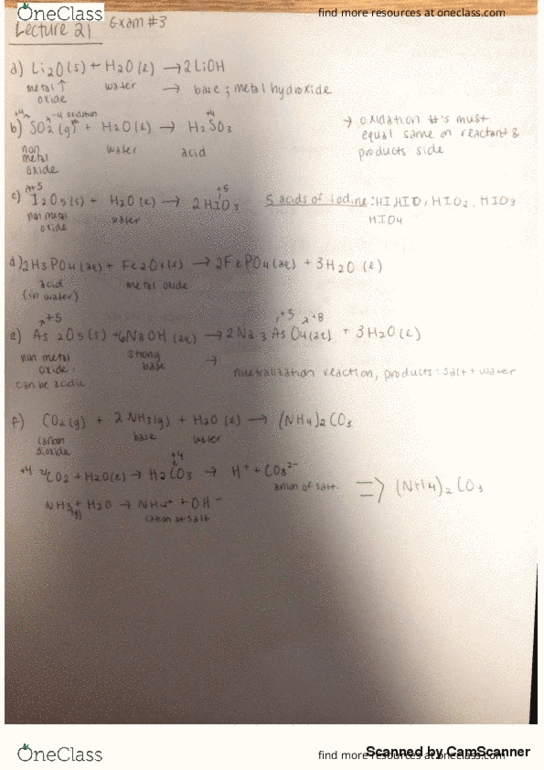 OneClass
find more resources at oneclass.com
Lecture 21 Exam #3
a) Li2O(s) + H2O(l) → 2LiOH
metal ↑ oxide water → base ; metal hydroxide
+4 -4 oxidation +4
b) SO2(g) + H2O(l) → H2SO3
non metal oxide water acid
→ oxidation #'s must
equal same on reactant &
products side
+5 +5
c) I2O5(s) + H2O(l) → 2HIO3 5 acids of iodine: HI, HIO, HIO2, HIO3
non metal oxide water HIO4
d) 2H3PO4(aq) + Fe2O3(s) → 2FePO4(aq) + 3H2O(l)
acid (in water) metal oxide
+5 +5 +8
e) As2O5(s) + 6NaOH(aq) → 2Na3AsO4(aq) + 3H2O(l)
non metal oxide: can be acidic strong base →
neutralization reaction, products: salt + water
f) CO2(g) + 2NH3(g) + H2O(l) → (NH4)2CO3
carbon dioxide base water
+4 +4
CO2 + H2O(l) → H2CO3 → H+ + CO3²⁻
anion of salt
⇒ (NH4)2CO3
NH3(g) + H2O → NH4+ + OH-
cation of salt
OneClass
find more resources at oneclass.com
Scanned by CamScanner